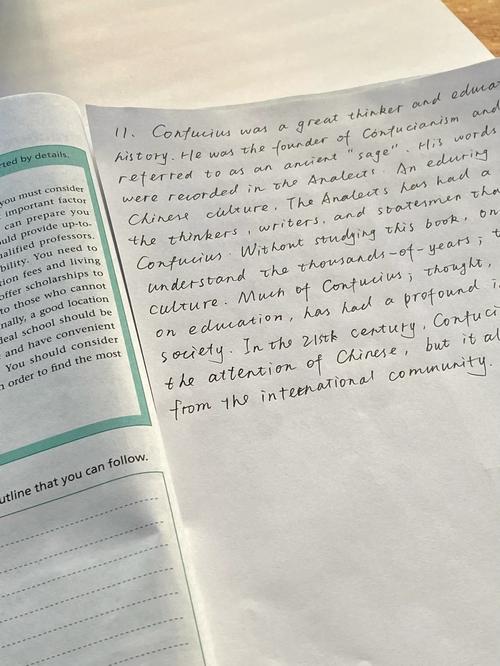 11. Confucius was a great thinker and educa
history. He was the founder of Confucianism and
referred to as an ancient "sage". His words
were recorded in the Analects. An eduring
Chinese culture. The Analects has had a
the thinkers, writers, and statesmen tha
Confucius. Without studying this book, on
understand the thousands-of-years; t
culture. Much of Confucius; thought,
on education, has had a profound i
society. In the 21sth century, Confuci
the attention of Chinese, but it al
from the international community.
ted by details.
you must consider
important factor
can prepare you
uld provide up-to-
alified professors.
bility. You need to
tion fees and living
offer scholarships to
to those who cannot
nally, a good location
deal school should be
and have convenient
You should consider
n order to find the most
utline that you can follow.